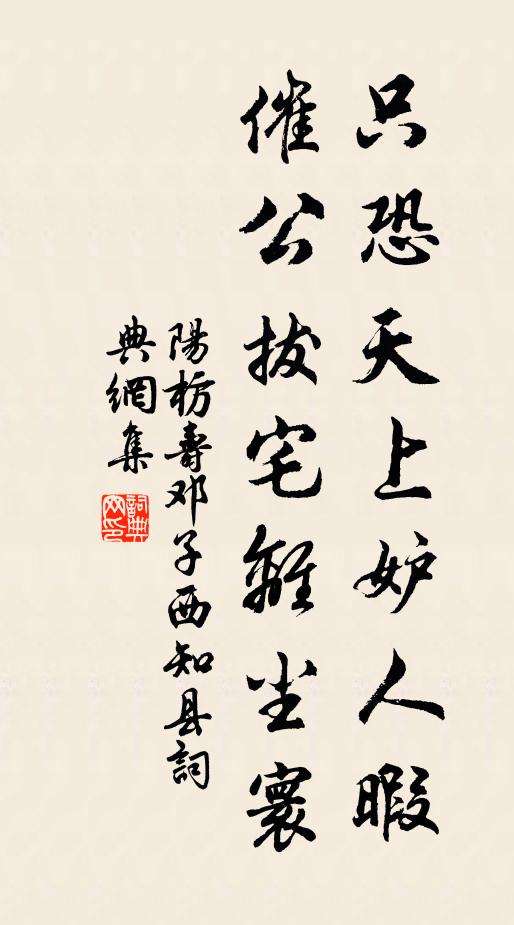 只恐天上妒人暇
催公拔宅離尘寰
陽枋壽邓子西知县詞
典網集
詞典
网印